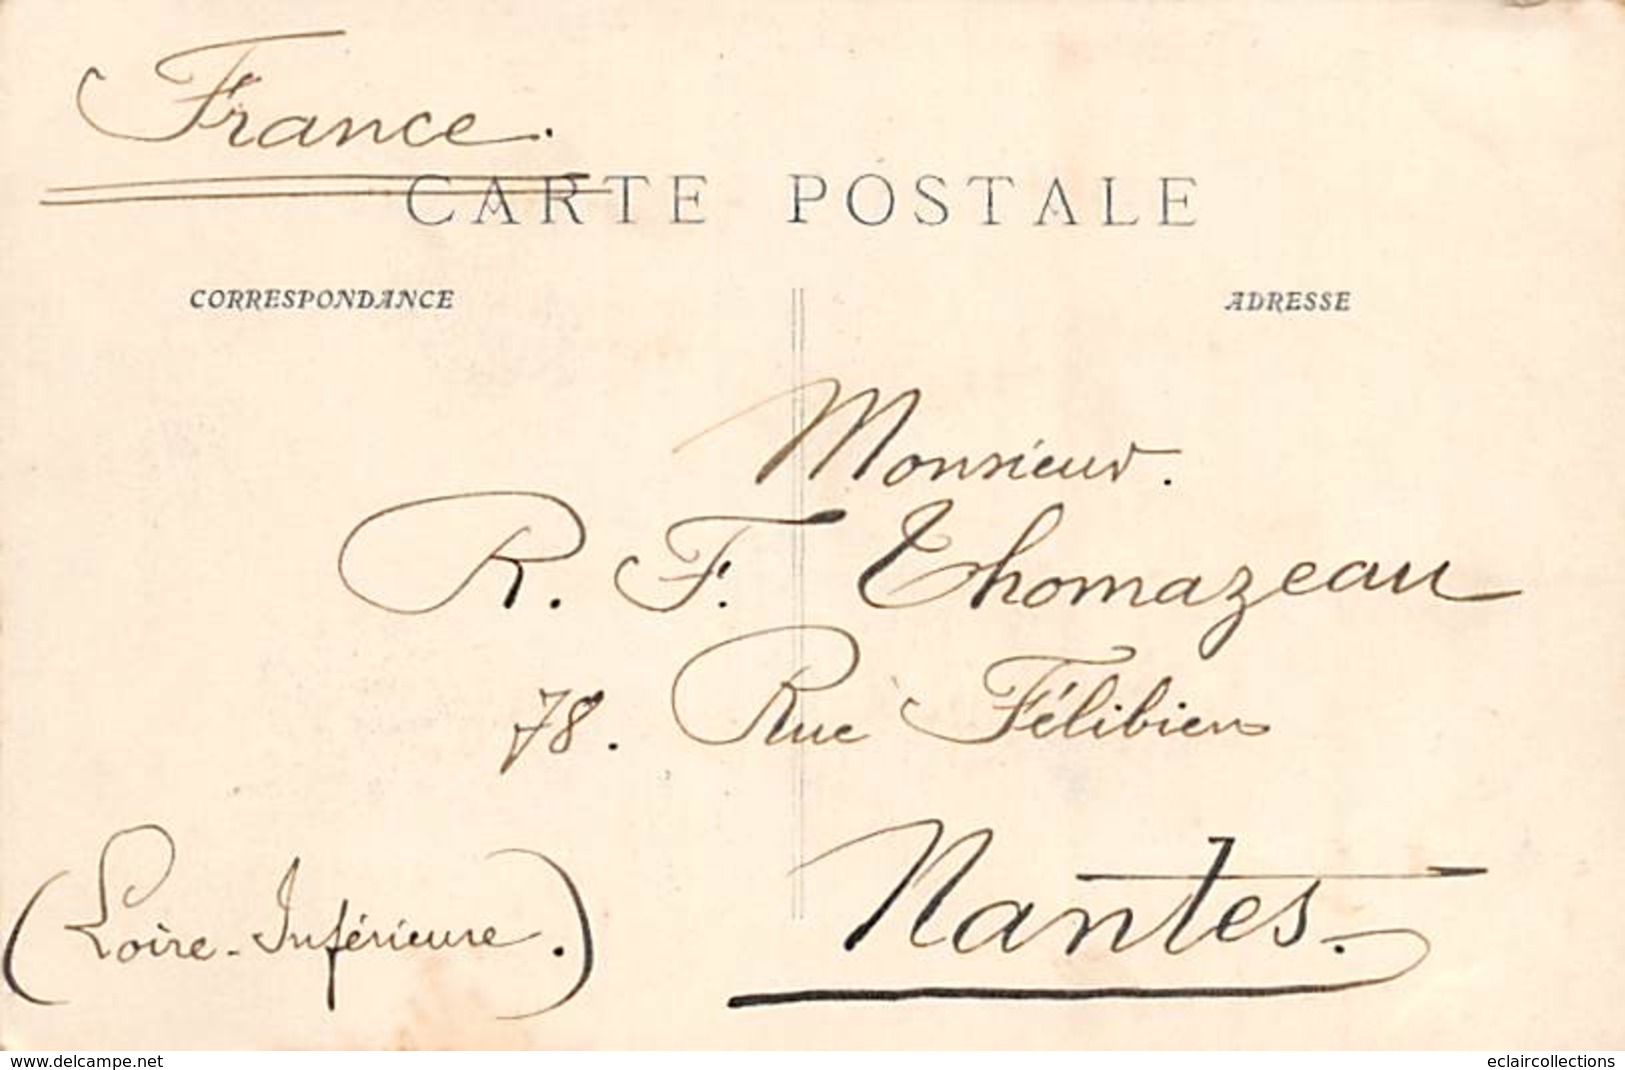 France.
CARTE POSTALE
CORRESPONDANCE
ADRESSE
Monsieur.
R. F. Thomazeau
78. Rue Félibien
Nantes.
(Loire-Inférieure.)
www.delcampe.net
eclaircollections